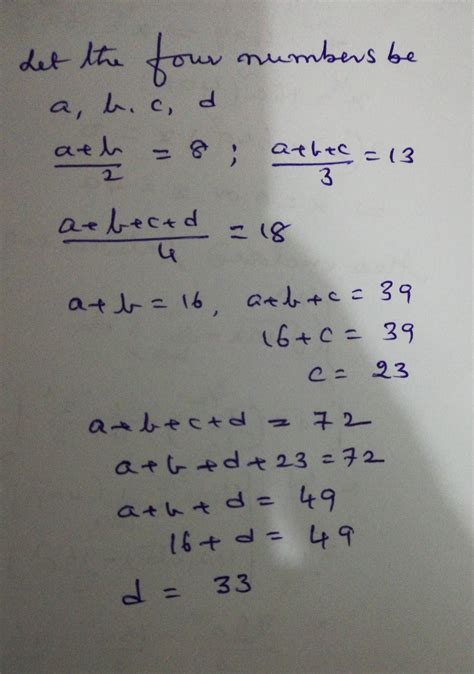 Let the four numbers be
a, b, c, d
(a+b)/2 = 8 ; (a+b+c)/3 = 13
(a+b+c+d)/4 = 18
a+b = 16, a+b+c = 39
16+c = 39
c = 23
a+b+c+d = 72
a+b+d+23=72
a+b+d = 49
16+d = 49
d = 33